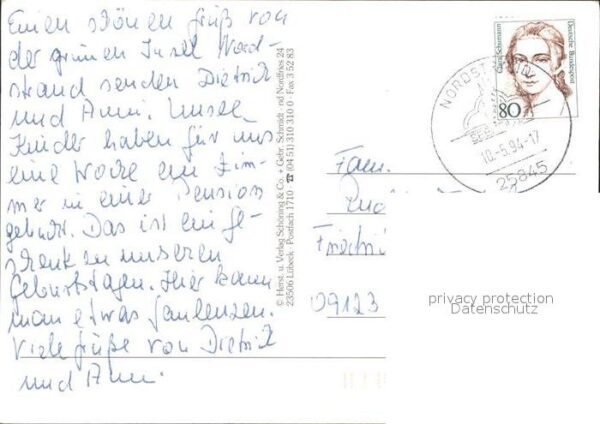 Einen schönen Gruß von
der grünen Insel Nord-
strand senden Dietrich
und Anni. Unsere
Kinder haben für uns
eine Woche ein Zim-
mer in einer Pension
gebucht. Das ist ein Ge-
schenk zu unseren
Geburtstagen. Hier kann
man etwas faulenzen.
Viele Grüße von Dietrich
und Anni.
© Herst. u. Verlag Schöning & Co. + Gebr. Schmidt · nd Nordfries 24
23506 Lübeck · Postfach 1710 ☎ (04 51) 310 310 0 · Fax 3 52 83
Clara Schumann
Deutsche Bundespost
80
NORDST
10.-5.94-17
25845
Fam.
Friedri
09123
privacy protection
Datenschutz